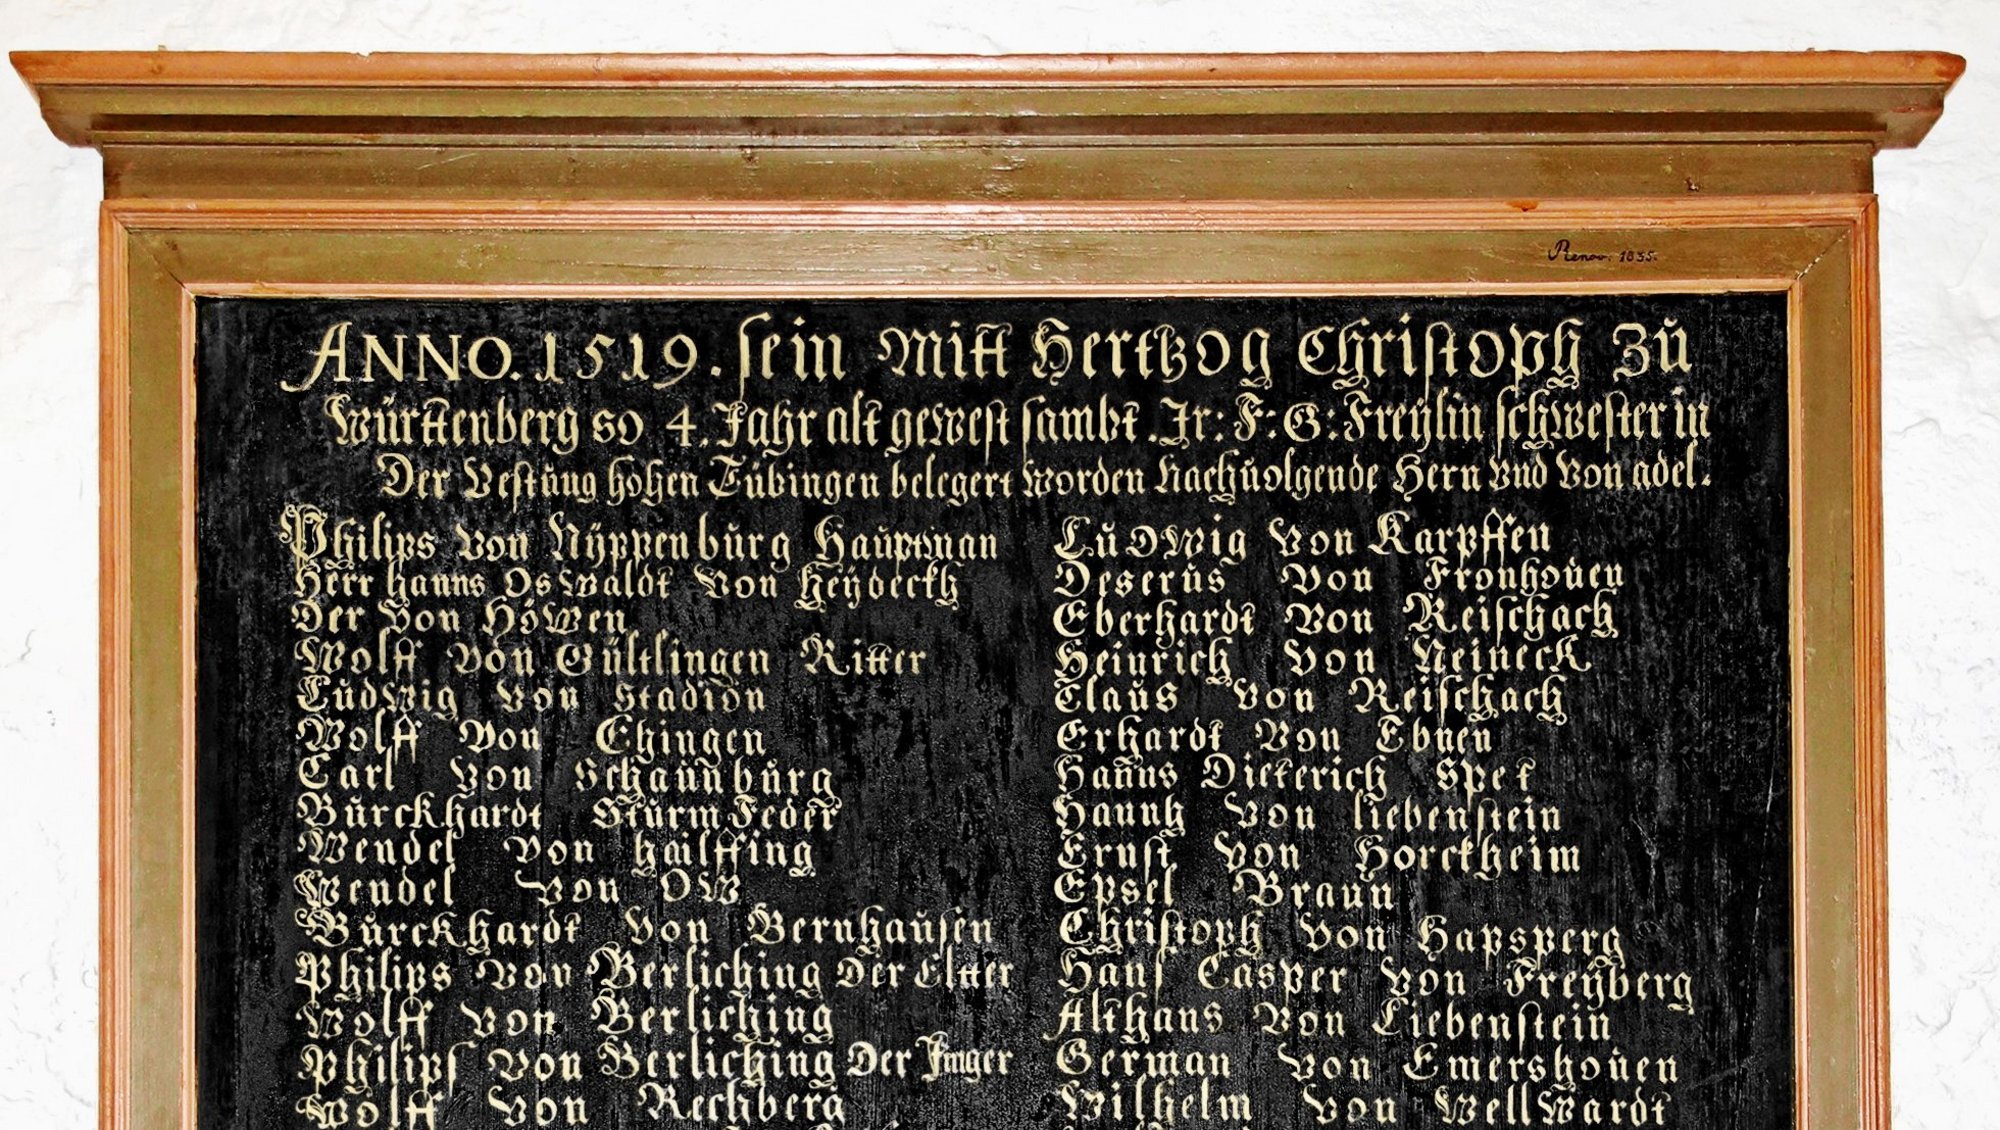 Renov: 1835.
ANNO. 1519. sein Mitt Hertzog Christoph Zů
Württenberg so 4. Jahr alt gewest sambt. Jr: F: G: Freÿlin schwester in
Der Vestůng hohen Tübingen belegert worden Nachuolgende Hern vnd Von adel.
Philips Von Nÿppenbůrg Haůptman
Herr Hanns Oswaldt Von Heÿdeckh
Der Von Höwen
Wolff Von Gültlingen Ritter
Lůdwig Von Stadion
Wolff Von Ehingen
Carl Von Schaůnbůrg
Bůrckhardt SturmFeder
Wendel Von Hailffing
Wendel Von OW
Bůrckhardt Von Bernhaůsen
Philips Von Berliching Der Eltter
Wolff Von Berliching
Philips Von Berliching Der Jnger
Wolff Von Rechberg
Lůdwig Von Karpffen
Deserůs Von Fronhoůen
Eberhardt Von Reischach
Heinrich Von Neineck
Claůs Von Reischach
Erhardt Von Ebnen
Hanns Dieterich Spet
Hannß Von liebenstein
Ernst Von Horckheim
Epsel Braůn
Christoph Von Hapsperg
Hans Casper Von Freÿberg
Althans Von Liebenstein
German Von Emershoůen
Wilhelm Von WellWardt